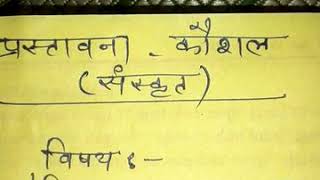 प्रस्तावना - कौशल
(संस्कृत)
विषय :-